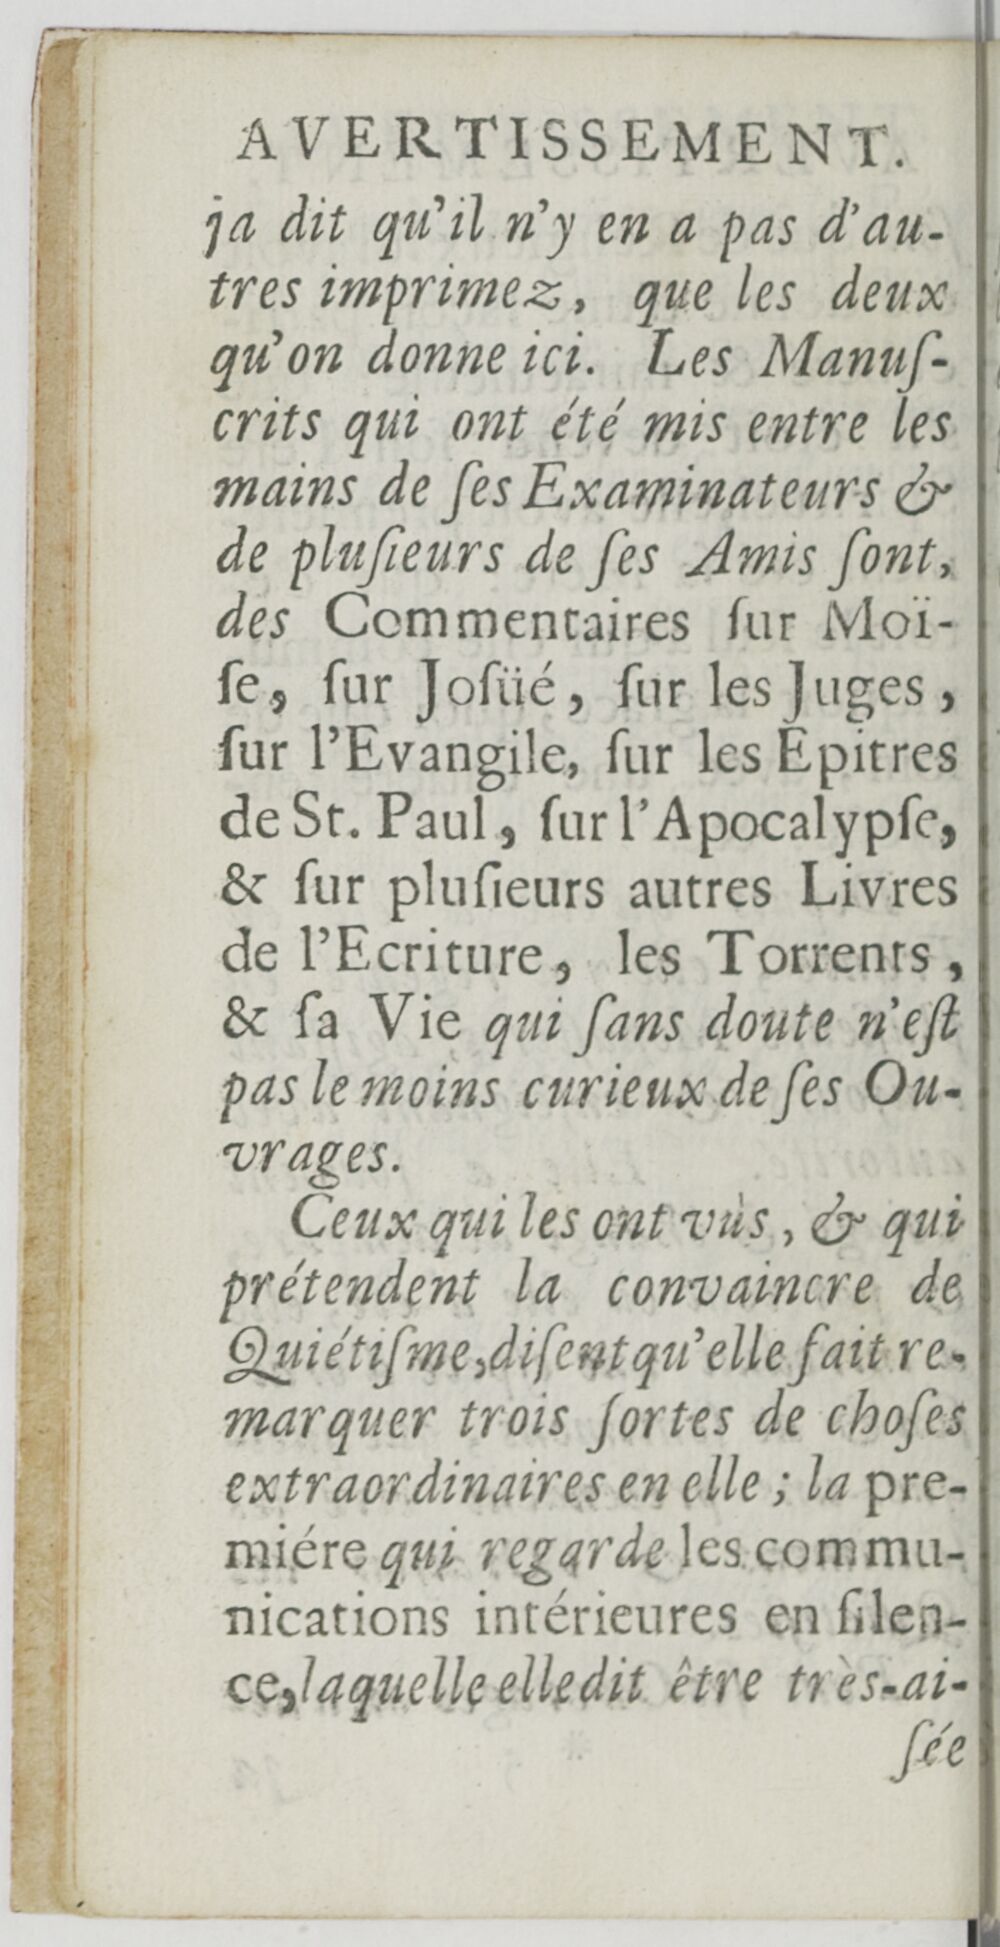 AVERTISSEMENT.
ja dit qu'il n'y en a pas d'au-
tres imprimez, que les deux
qu'on donne ici. Les Manuſ-
crits qui ont été mis entre les
mains de ſes Examinateurs &
de pluſieurs de ſes Amis ſont,
des Commentaires ſur Moï-
ſe, ſur Joſüé, ſur les Juges,
ſur l'Evangile, ſur les Epitres
de St. Paul, ſur l'Apocalypſe,
& ſur pluſieurs autres Livres
de l'Ecriture, les Torrents,
& ſa Vie qui ſans doute n'eſt
pas le moins curieux de ſes Ou-
vrages.
Ceux qui les ont vùs, & qui
prétendent la convaincre de
Quiétiſme, diſent qu'elle fait re-
marquer trois ſortes de choſes
extraordinaires en elle; la pre-
miére qui regarde les commu-
nications intérieures en ſilen-
ce, laquelle elle dit être très-ai-
ſée